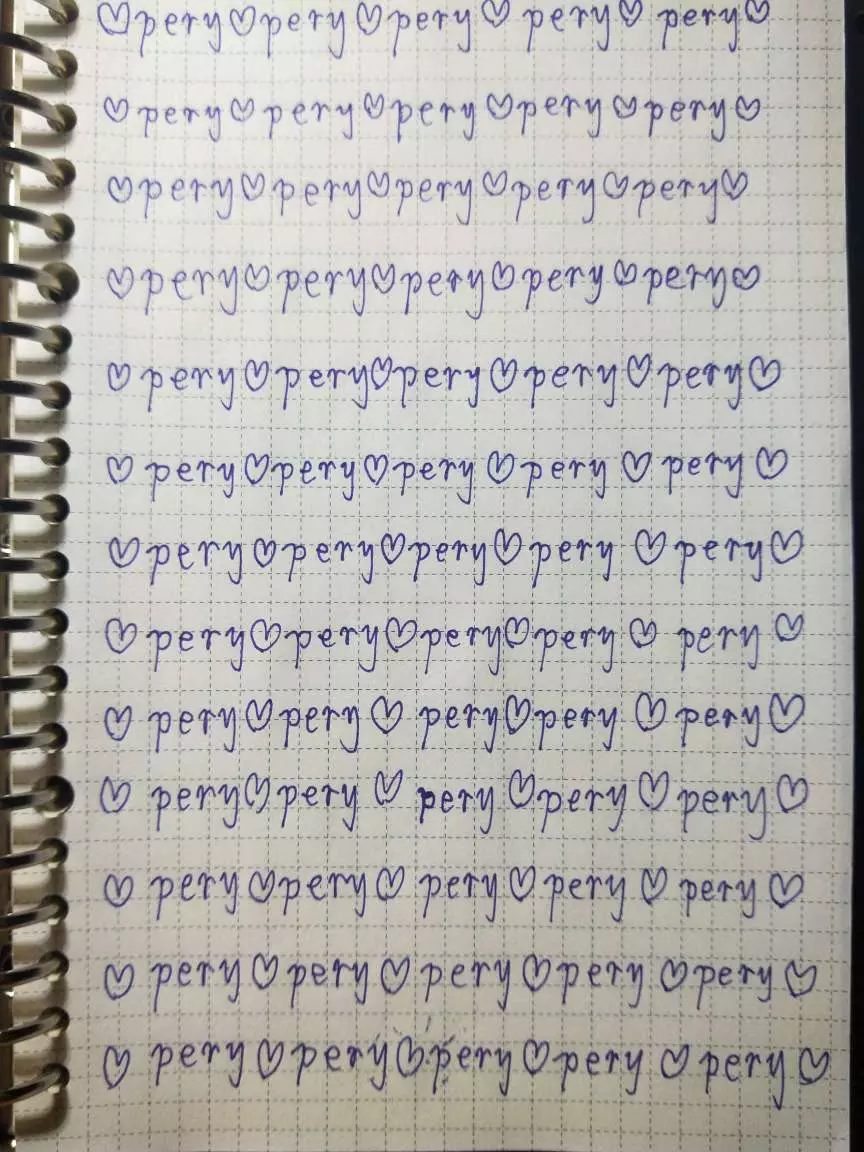 ♡pery♡pery♡pery♡pery♡pery♡
♡pery♡pery♡pery♡pery♡pery♡
♡pery♡pery♡pery♡pery♡pery♡
♡pery♡pery♡pery♡pery♡pery♡
♡pery♡pery♡pery♡pery♡pery♡
♡pery♡pery♡pery♡pery♡pery♡
♡pery♡pery♡pery♡pery♡pery♡
♡pery♡pery♡pery♡pery♡pery♡
♡pery♡pery♡pery♡pery♡pery♡
♡pery♡pery♡pery♡pery♡pery♡
♡pery♡pery♡pery♡pery♡pery♡
♡pery♡pery♡pery♡pery♡pery♡
♡pery♡pery♡pery♡pery♡pery♡